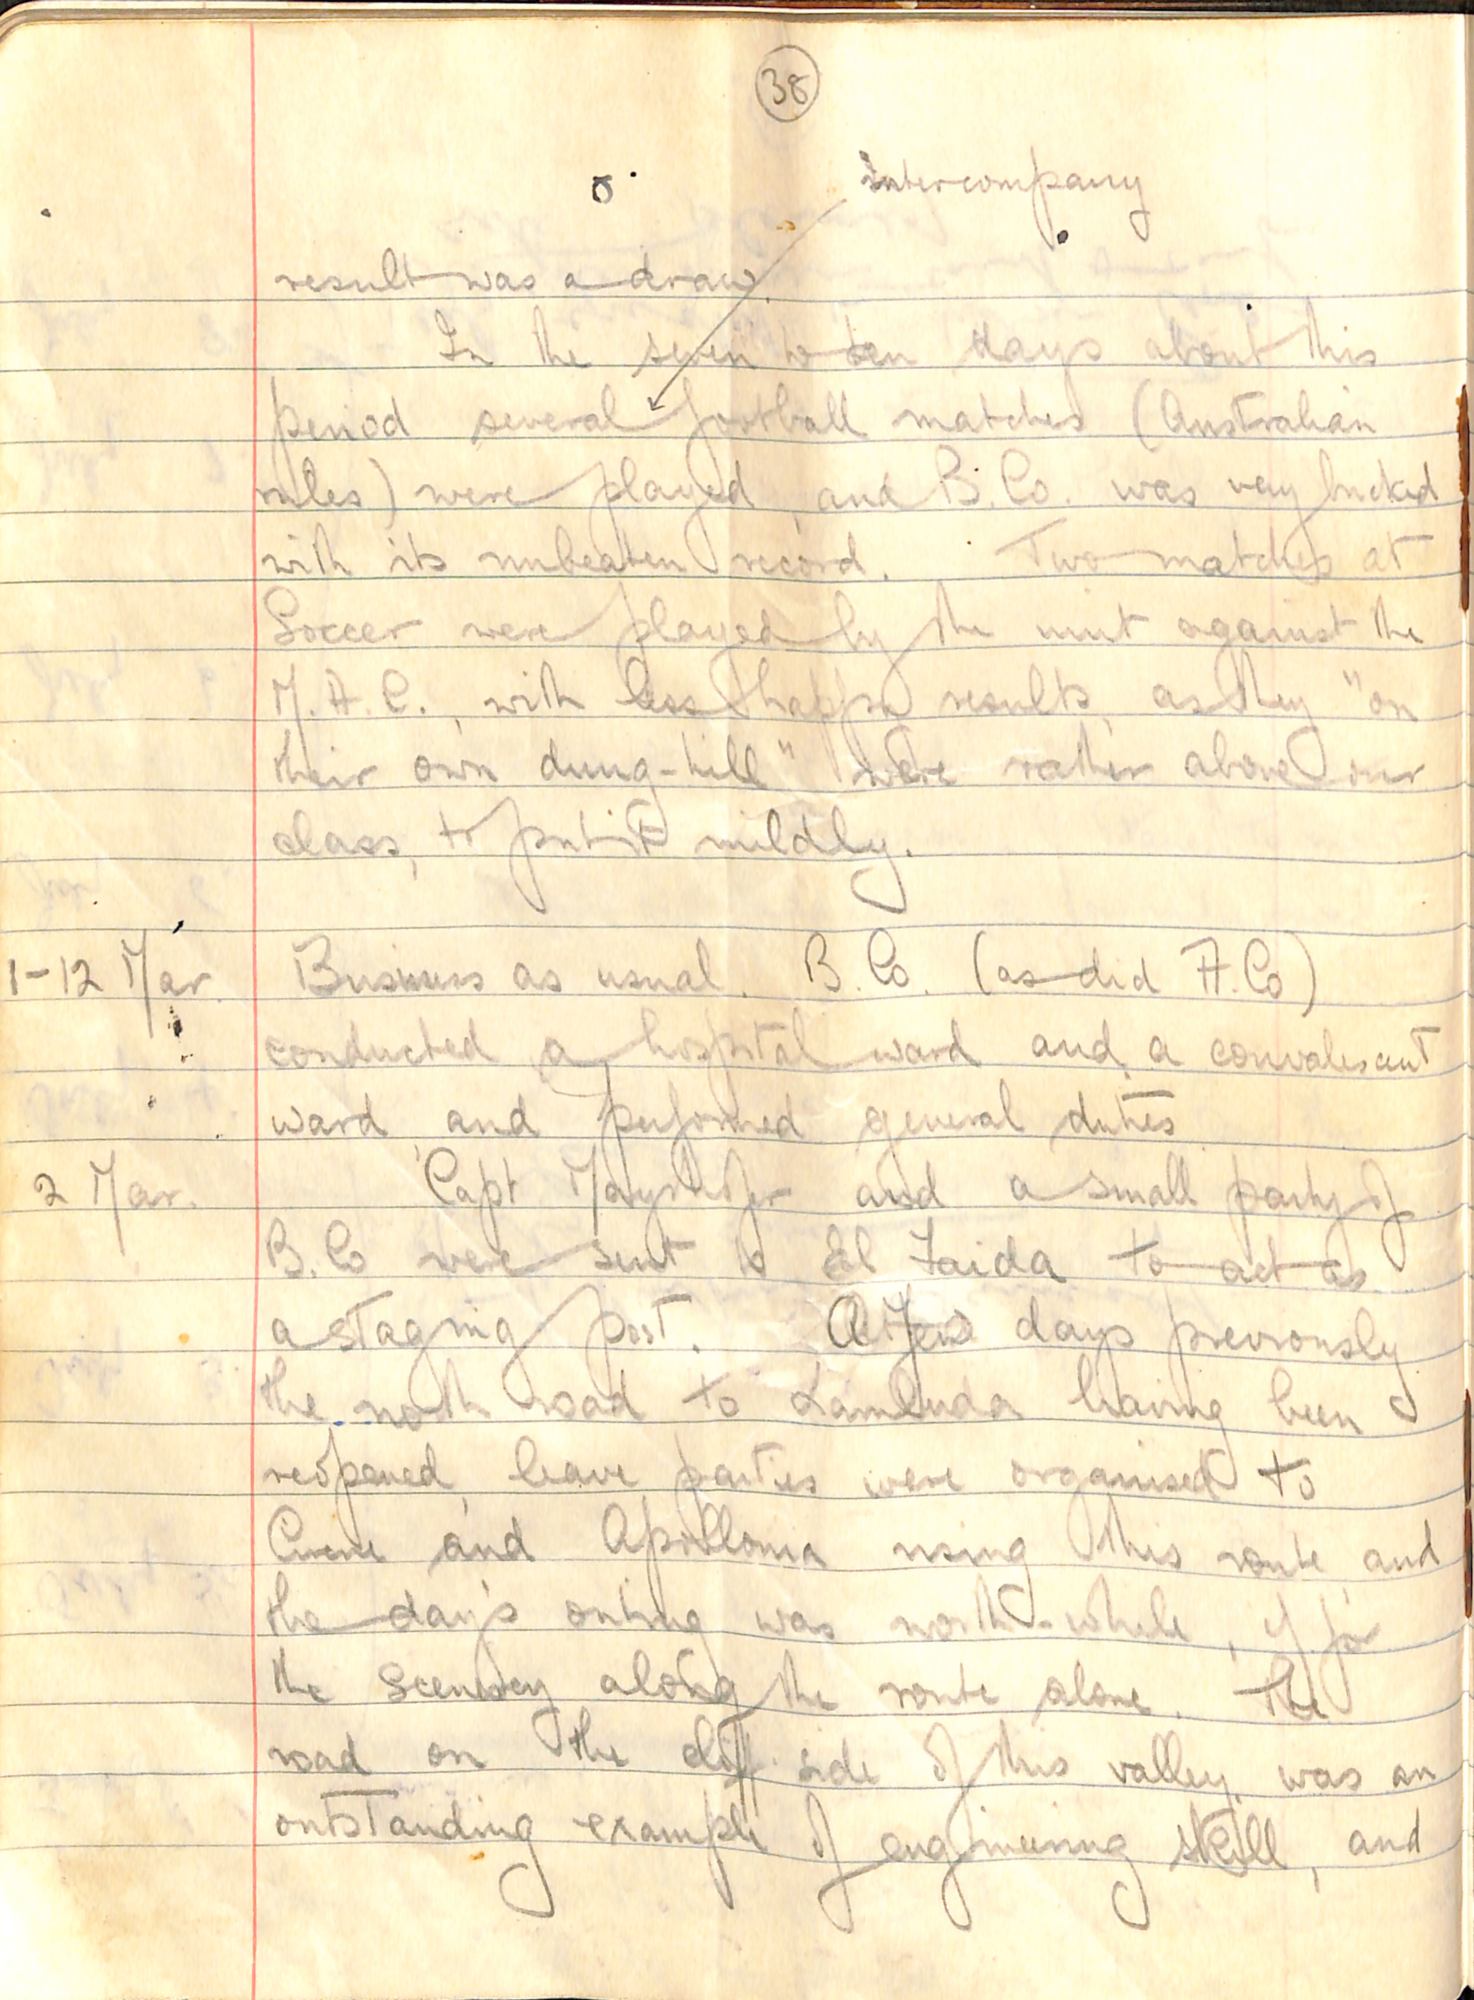 38
intercompany
result was a draw.
In the seven to ten days about this
period several football matches (Australian
rules) were played, and B.Co. was very bucked
with its unbeaten record. Two matches at
Soccer were played by the unit against the
M.A.C., with less happy results, as they "on
their own dung-hill" were rather above our
class, to put it mildly.
1-12 Mar. Business as usual. B.Co. (as did A.Co)
conducted a hospital ward and a convalescent
ward, and performed general duties
2 Mar. Capt Mayrhofer and a small party of
B.Co were sent to El Faida to act as
a staging post. A few days previously
the north road to Lamluda having been
reopened, leave parties were organised to
Cirene and Apollonia using this route, and
the day's outing was worth-while, if for
the scenery along the route alone. The
road on the cliff side of this valley was an
outstanding example of engineering skill, and